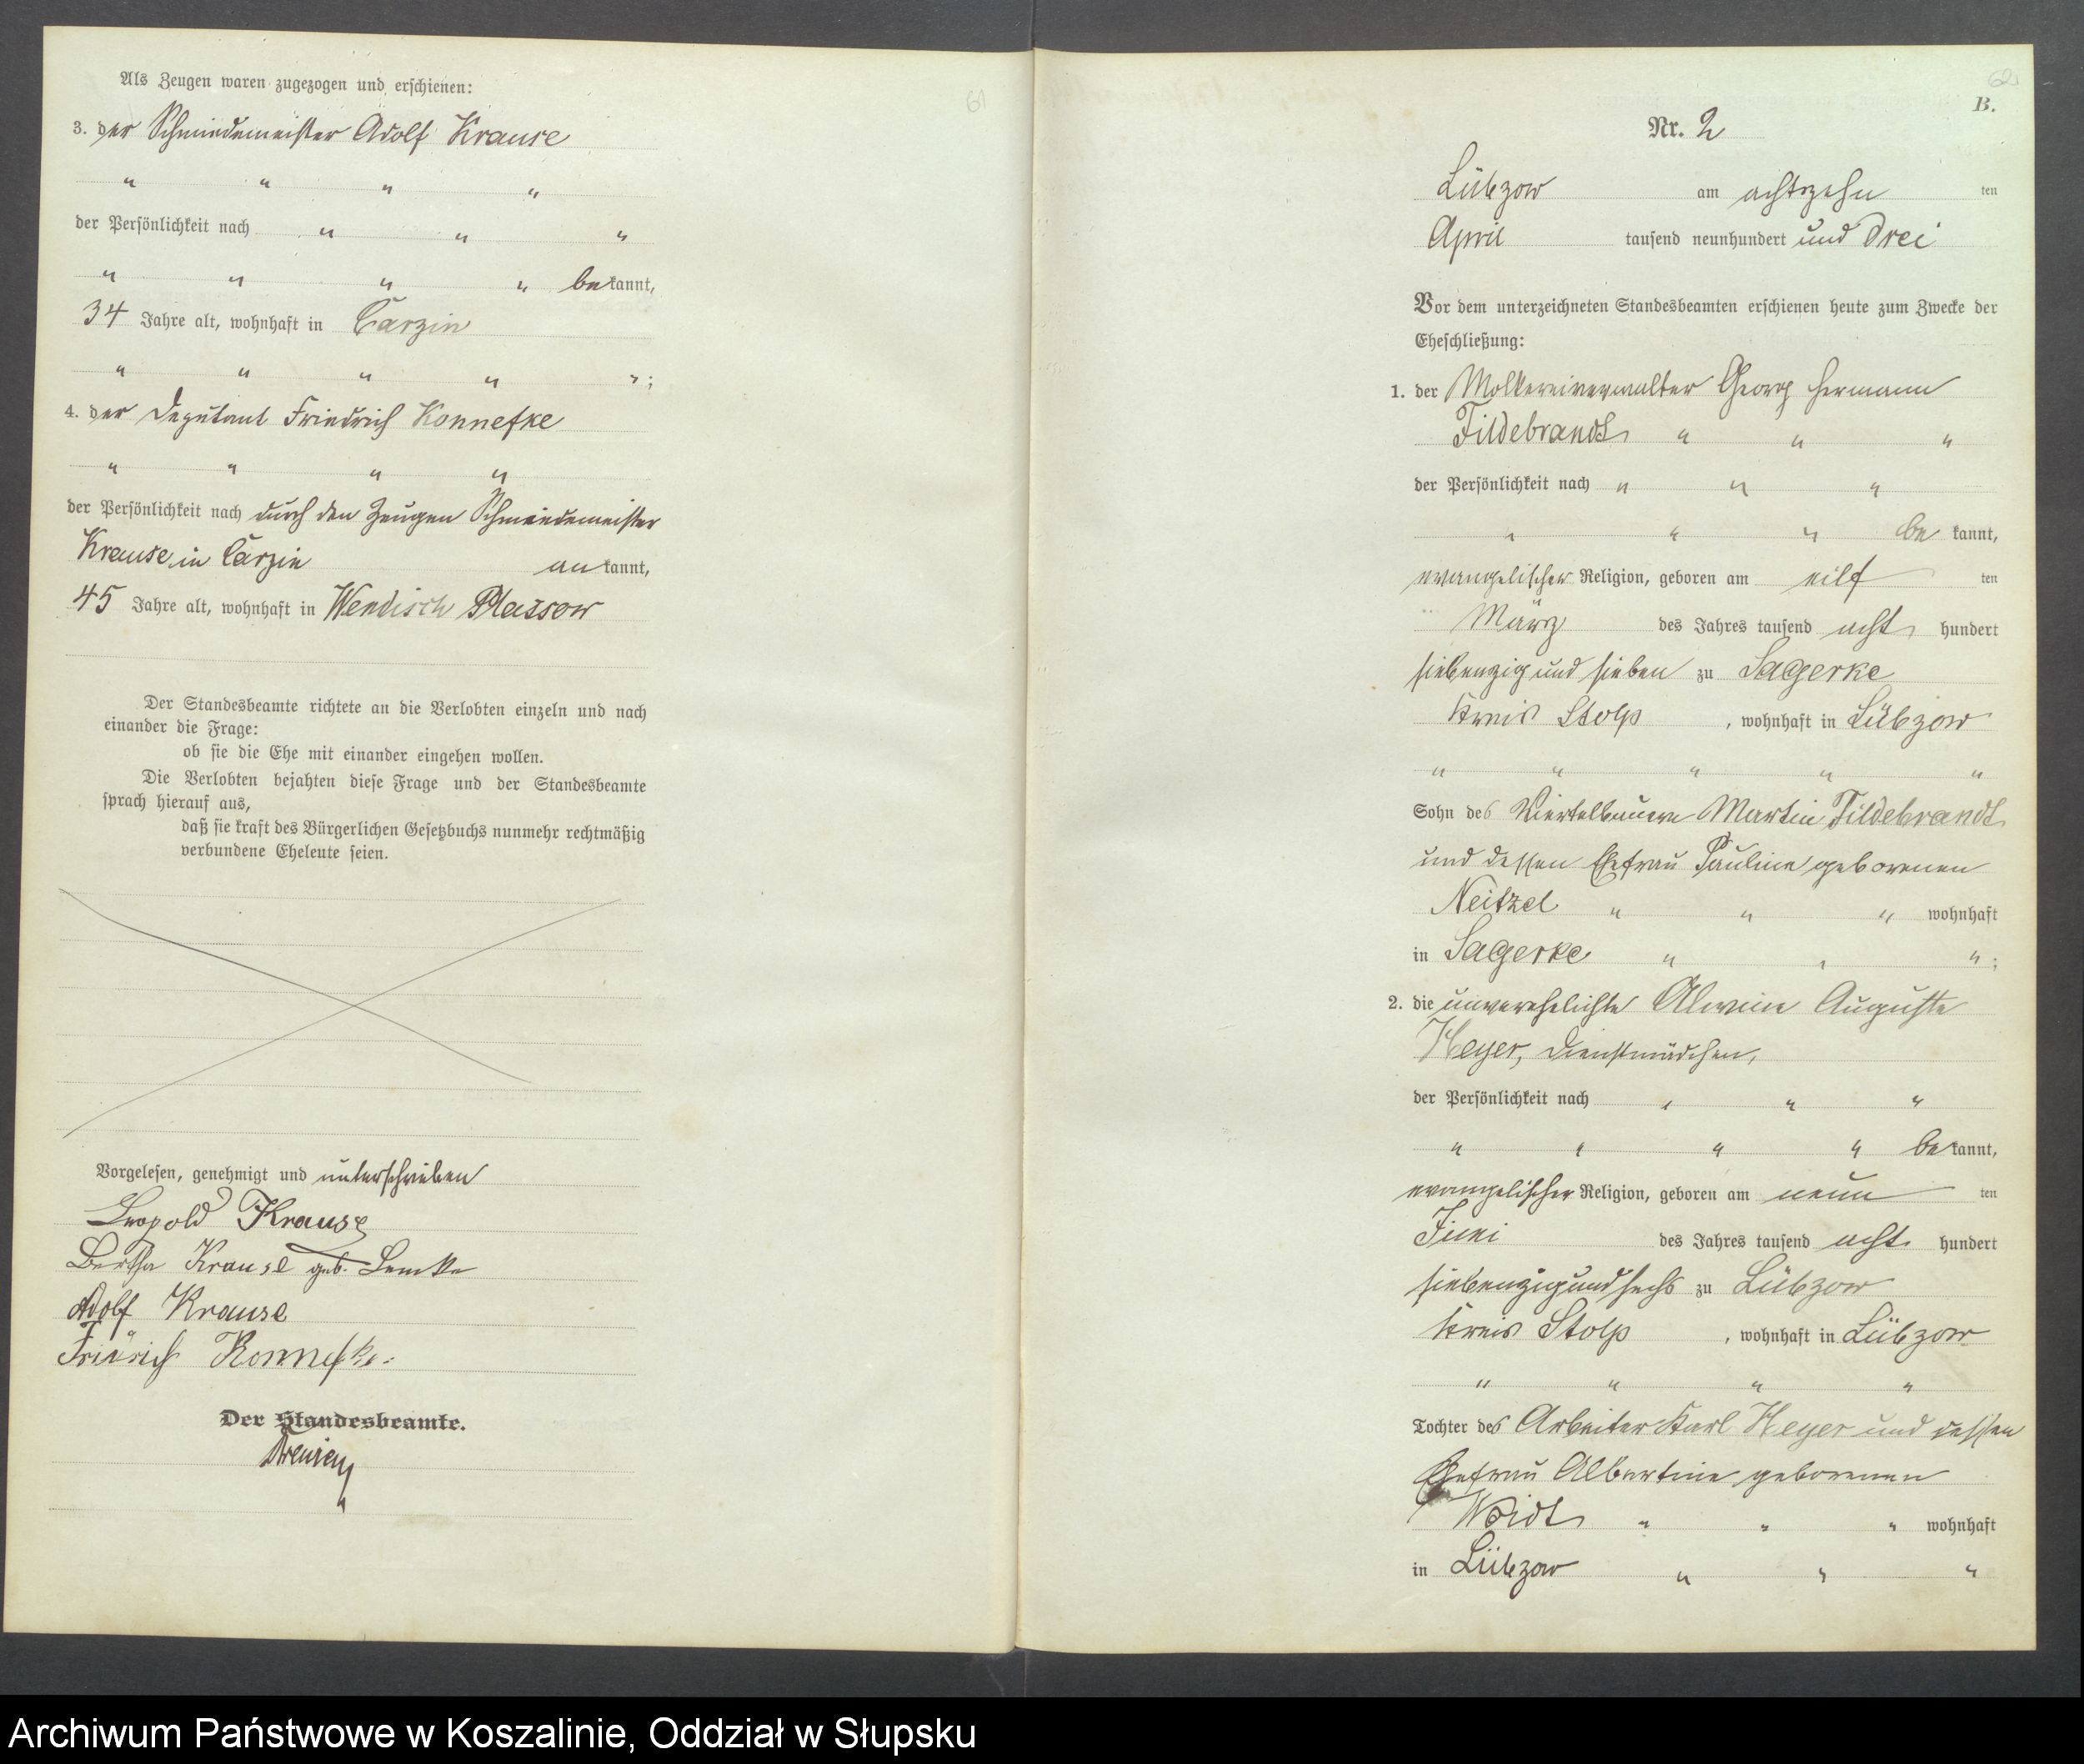 Als Zeugen waren zugezogen und erschienen:
3. der Schmiedemeister Adolf Krause
" " " "
der Persönlichkeit nach " " "
" " " " bekannt,
34 Jahre alt, wohnhaft in Carzin
" " " " ";
4. der Deputant Friedrich Konnefke
" " " "
der Persönlichkeit nach durch den Zeugen Schmiedemeister
Krause in Carzin ankannt,
45 Jahre alt, wohnhaft in Wendisch Plassow
Der Standesbeamte richtete an die Verlobten einzeln und nach
einander die Frage:
ob sie die Ehe mit einander eingehen wollen.
Die Verlobten bejahten diese Frage und der Standesbeamte
sprach hierauf aus,
daß sie kraft des Bürgerlichen Gesetzbuchs nunmehr rechtmäßig
verbundene Eheleute seien.
Vorgelesen, genehmigt und unterschrieben
Leopold Krause
Bertha Krause geb. Lemke
Adolf Krause
Fridrich Konnefke.
Der Standesbeamte.
61
62
B.
Nr. 2
Lübzow am achtzehn ten
April tausend neunhundert und drei
Vor dem unterzeichneten Standesbeamten erschienen heute zum Zwecke der
Eheschließung:
1. der Molkereiverwalter Georg Hermann
Fildebrandt " " "
der Persönlichkeit nach " " "
" " " be kannt,
evangelischer Religion, geboren am eilf ten
März des Jahres tausend acht hundert
siebenzig und sieben zu Sagerke
Kreis Stolp , wohnhaft in Lübzow
" " " " "
Sohn des Viertelbauern Martin Fildebrandt
und dessen Ehefrau Pauline geborenen
Neitzel " " " wohnhaft
in Sagerke " " ";
2. die unverehelichte Alwine Auguste
Heyer, Dienstmädchen,
der Persönlichkeit nach " " "
" " " " bekannt,
evangelischer Religion, geboren am neun ten
Juni des Jahres tausend acht hundert
siebenzig und sechs zu Lübzow
Kreis Stolp , wohnhaft in Lübzow
" " " "
Tochter des Arbeiter Karl Heyer und dessen
Ehefrau Albertine geborenen
Woidt " " " wohnhaft
in Lübzow " " "
Archiwum Państwowe w Koszalinie, Oddział w Słupsku